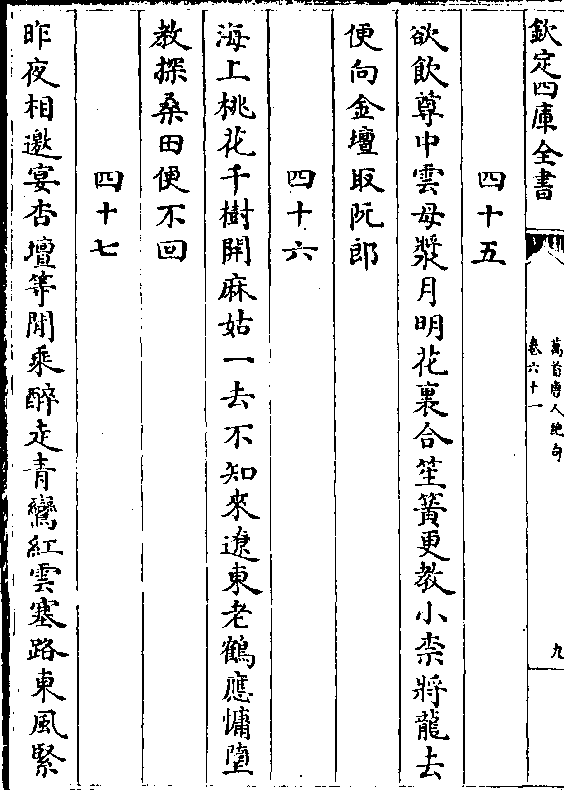 欽定四庫全書
萬首唐人絶句
卷六十一
九
四十五
欲飲尊中雲母漿月明花裏合笙簧更教小柰將龍去
便向金壇取阮郎
四十六
海上桃花千樹開麻姑一去不知來遼東老鶴應慵墮
教探桑田便不回
四十七
昨夜相邀宴杏壇等閒乘醉走青鸞紅雲塞路東風緊